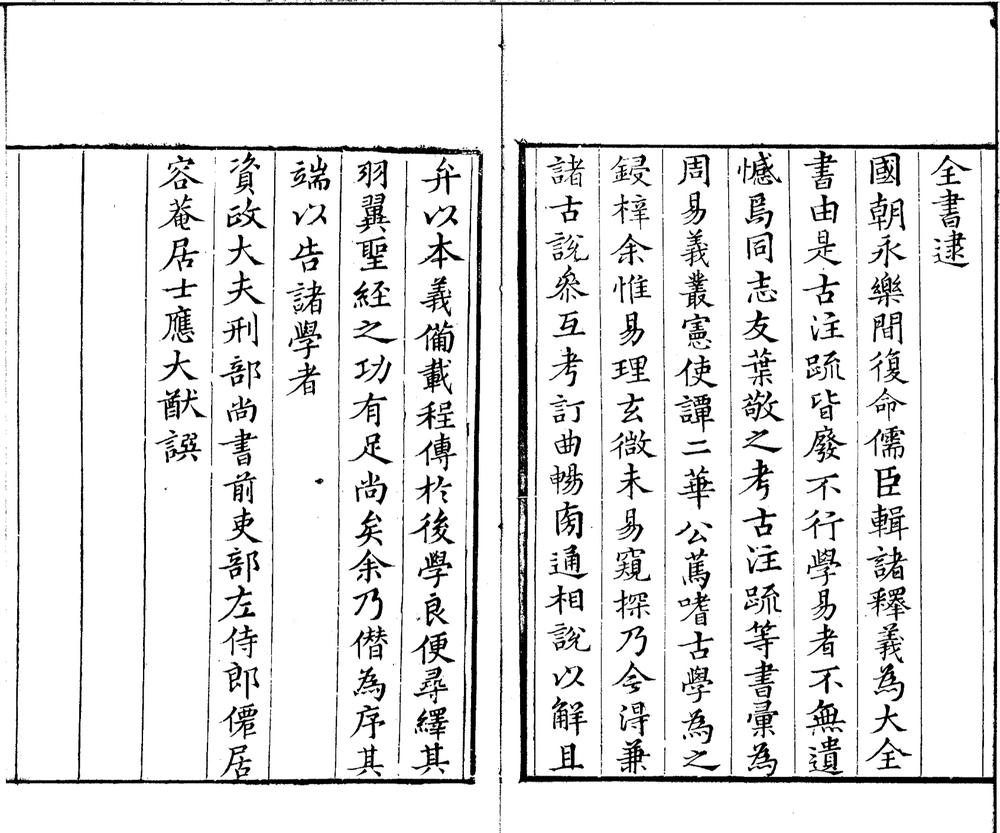 全書逮
國朝永樂間復命儒臣輯諸釋義為大全
書由是古注䟽皆廢不行學易者不無遺
憾焉同志友葉敬之考古注䟽等書彙為
周易義叢憲使譚二華公萬嗜古學為之
鋟梓余惟易理玄微未易窺探乃今淂兼
諸古說叅互考訂曲暢旁通相說以解且
弁以本義備載程傳於後學良便尋繹其
羽翼聖經之功有足尚矣余乃僭為序其
端以告諸學者
資政大夫刑部尚書前吏部左侍郎僊居
容菴居士應大猷譔